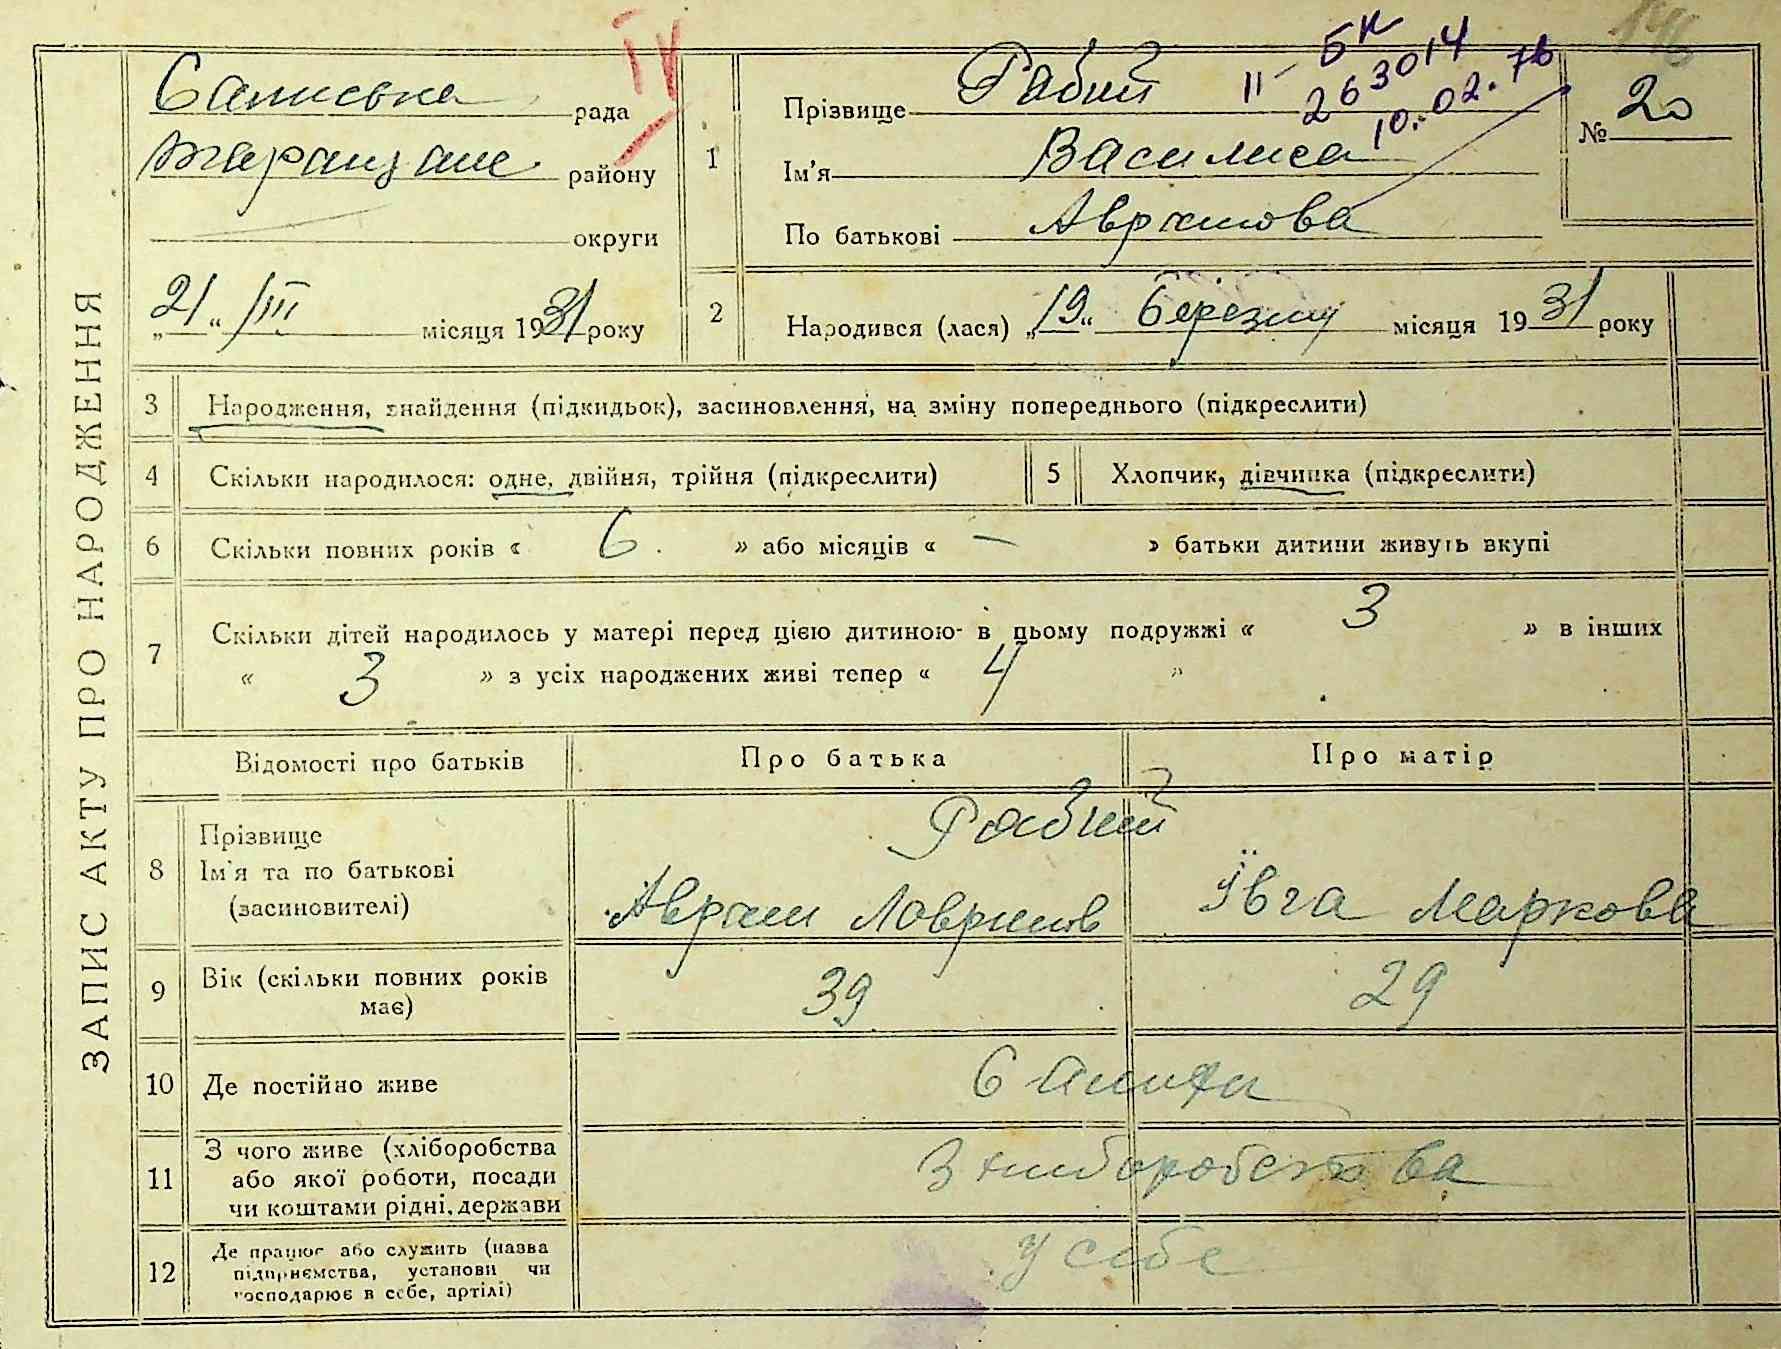 ЗАПИС АКТУ ПРО НАРОДЖЕННЯ
IV
146
рада
району
округи
„21“ III місяця 1931 року
1
Прізвище Рабий
II-БК
263014
10.02.76
Ім'я Василиса
По батькові
№ 20
2
Народився (лася) „19“ березня місяця 1931 року
3 Народження, знайдення (підкидьок), засиновлення, на зміну попереднього (підкреслити)
4 Скільки народилося: одне, двійня, трійня (підкреслити)
5 Хлопчик, дівчинка (підкреслити)
6 Скільки повних років « 6 » або місяців « — » батьки дитини живуть вкупі
7 Скільки дітей народилось у матері перед цією дитиною- в цьому подружжі « 3 » в інших
« 3 » з усіх народжених живі тепер « 4 »
Відомості про батьків Про батька Про матір
8 Прізвище
Ім'я та по батькові
(засиновителі)
Рабий
Ївга Маркова
9 Вік (скільки повних років
має)
39 29
10 Де постійно живе
11 З чого живе (хліборобства
або якої роботи, посади
чи коштами рідні, держави
З хліборобства
12 Де працює або служить (назва
підприємства, установи чи
господарює в себе, артілі)
У себе